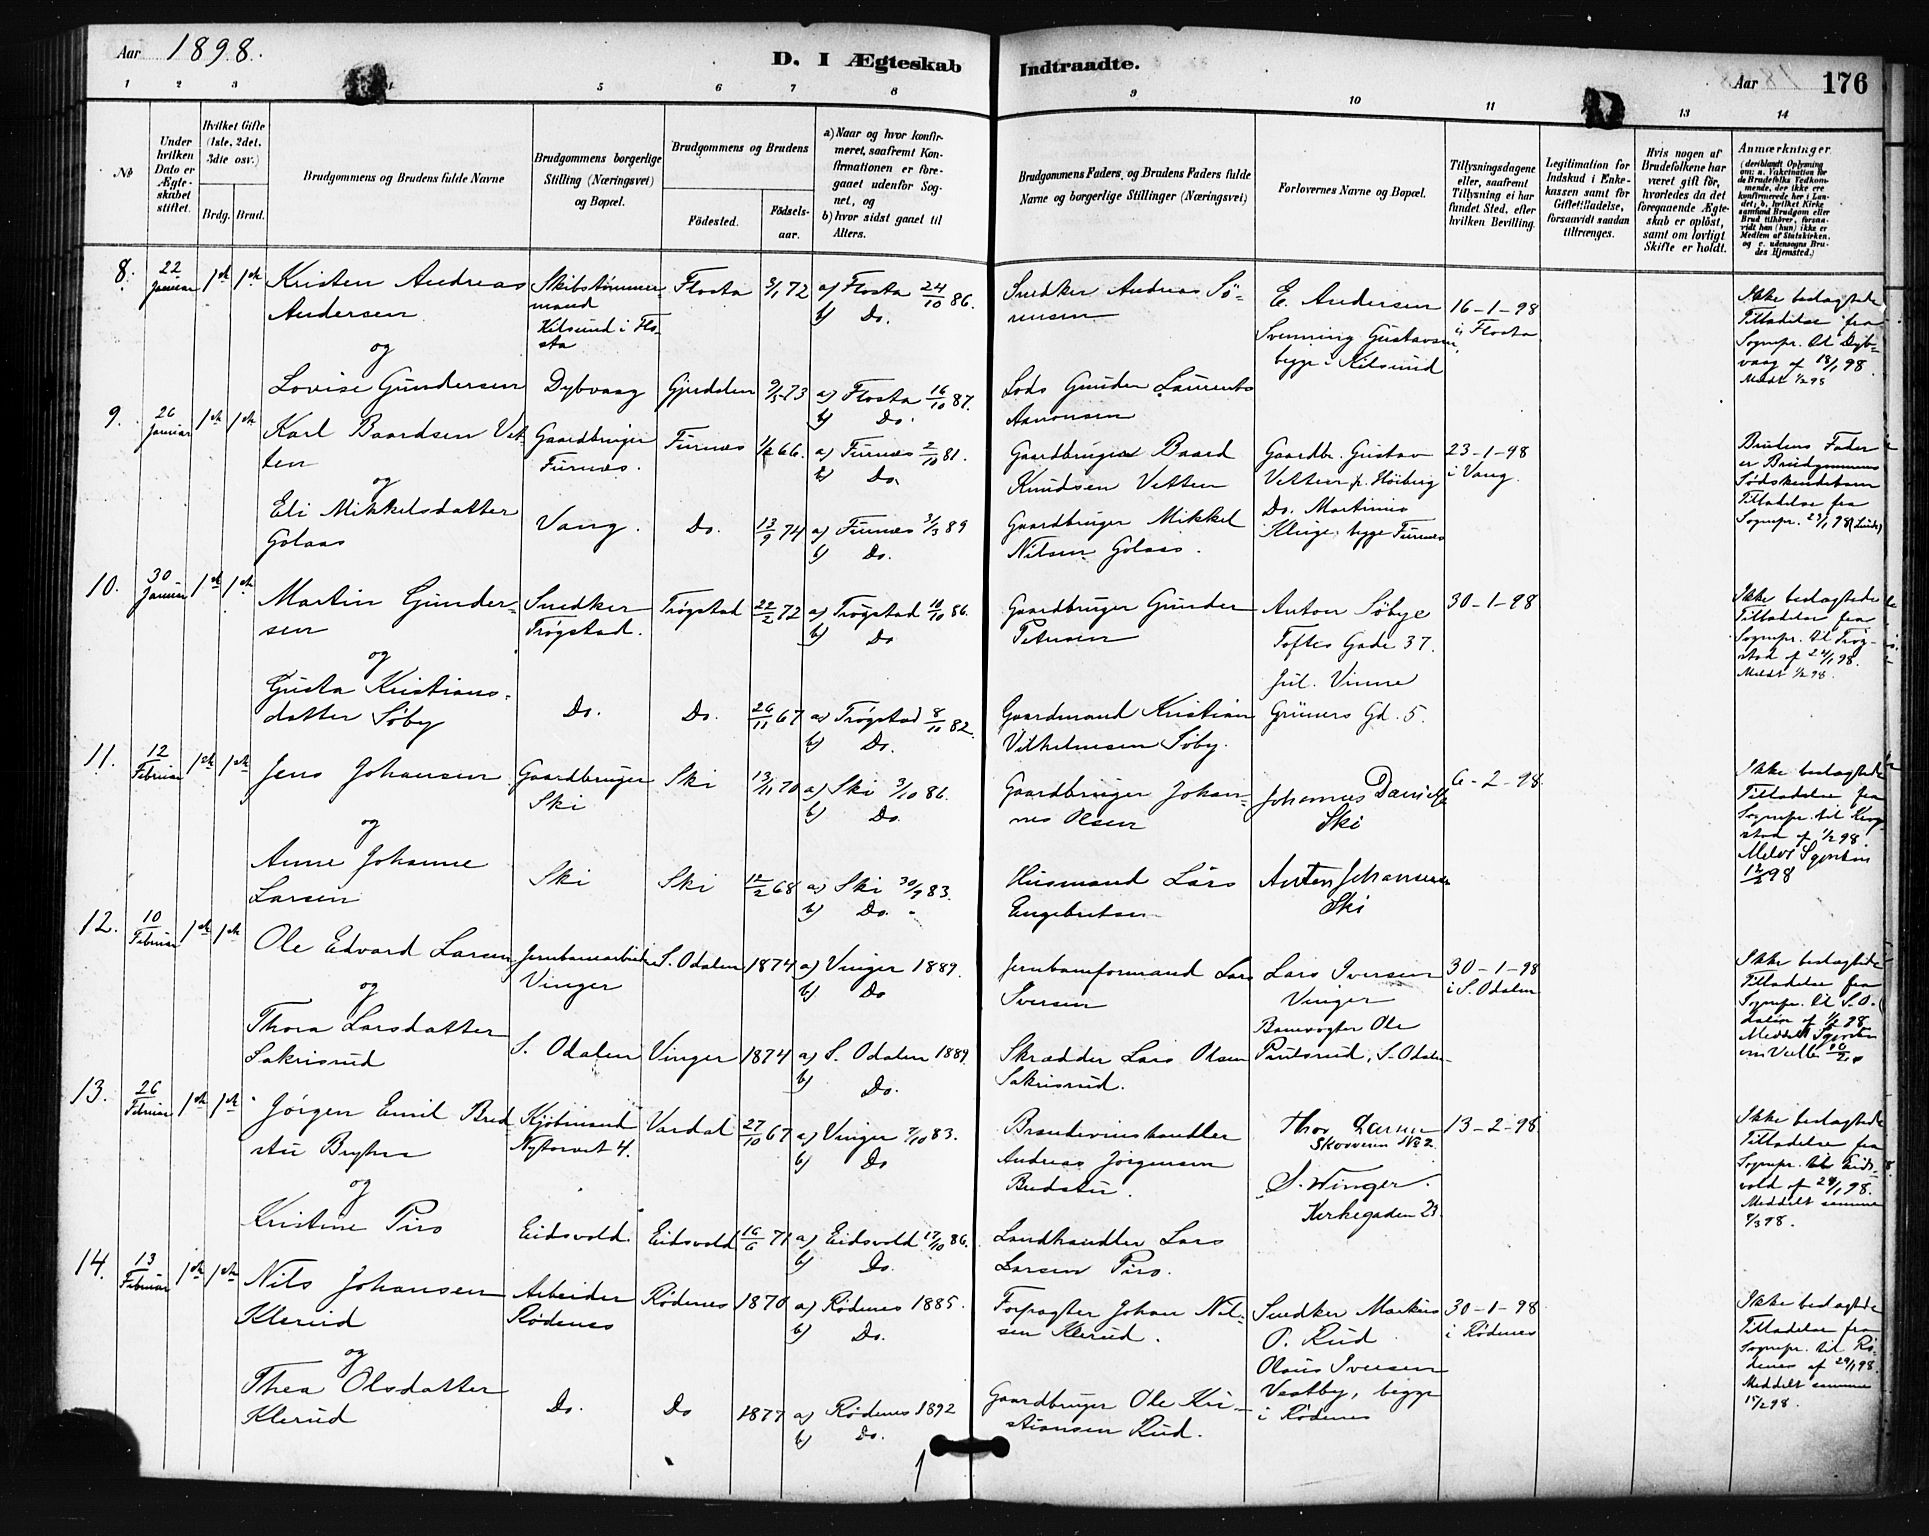 Aar 1898.
D. I Ægteskab Indtraadte.
Aar 176
1 2 3 4 5 6 7 8 9 10 11 13 14
No
Under hvilken Dato er Ægteskabet stiftet.
Hvilket Gifte (1ste, 2det, 3die osv.)
Brdg. Brud.
Brudgommens og Brudens fulde Navne
Brudgommens borgerlige Stilling (Næringsvei) og Bopæl.
Brudgommens og Brudens
Fødested.
Fødselsaar.
a) Naar og hvor konfirmeret, saafremt Konfirmationen er foregaaet udenfor Sognet, og
b) hvor sidst gaaet til Alters.
Brudgommens Faders og Brudens Faders fulde Navne og borgerlige Stillinger (Næringsvei)
Forlovernes Navne og Bopæl.
Tillysningsdagene eller, saafremt Tillysning ei har fundet Sted, efter hvilken Bevilling.
Legitimation for Indskud i Enkekassen samt for Giftetilladelse, forsaavidt saadan tiltrænges.
Hvis nogen af Brudefolkene har været gift før, hvorledes da det foregaaende Ægteskab er opløst, samt om lovligt Skifte er holdt.
Anmærkninger.
8. 22 Januar 1ste 1ste
Kristen Andreas Andersen
Skibstømmermand Kilsund i Flosta
Flosta 3/1 72
a) Flosta 24/10 86.
b) Do.
Snedker Andreas Sørensen
E. Andersen
Svenning Gustavsen, begge i Kilsund
16-1-98 i Flosta
Ikke bedagtede Tilladelse fra Sognepr. til Dybvaag af 18/1 98.
Meldt 1/2 98
og
Lovise Gundersen
Dybvaag
Gjerdalen 9/5 73
a) Flosta 16/10 87.
b) Do.
Lods Gunder Laurents Aanonsen
9. 26 Januar 1ste 1ste
Karl Baardsen Vetten
Gaardbruger Furnes.
Furnes 1/2 66.
a) Furnes 2/10 81.
b) Do.
Gaardbruger Baard Knudsen Vetten
Gaardbr. Gustav Vetten p. Høiberg
Do. Martinius Kluge, begge Furnes
23-1-98 i Vang.
Brudens Fader er Brudgommens Sødskendebarn
Tilladelse fra Sognepr. 23/1 98
og
Eli Mikkelsdatter Golaas
Vang.
Do. 13/9 74
a) Furnes 3/3 89
b) Do.
Gaardbruger Mikkel Nilsen Golaas.
10. 30 Januar 1ste 1ste
Martin Gundersen
Snedker Trøgstad.
Trøgstad 22/2 72
a) Trøgstad 10/10 86.
b) Do
Gaardbruger Gunder Petersen
Anton Søbye
Toftes Gade 37.
Jul. Vinne
Grüners Gd. 5.
30-1-98
Ikke bedagtede Tilladelse fra Sognepr. til Trøgstad af 24/1 98.
Meldt 1/2 98.
og
Gusta Kristiansdatter Søby
Do.
Do. 26/11 67
a) Trøgstad 8/10 82.
b) Do.
Gaardmand Kristian Vilhelmsen Søby.
11. 12 Februar 1ste 1ste
Jens Johansen
Gaardbruger Ski
Ski 13/11 70
a) Ski 3/10 86.
b) Do.
Gaardbruger Johannes Olsen
Johannes Danielse
Ski
6-2-98
Ikke bedagtede Tilladelse fra Sognepr. til Krogstad af 1/2 98.
12/2 98
og
Anne Johanne Larsen
Ski
Ski 12/2 68
a) Ski 30/9 83.
b) Do.
Husmand Lars Engebretsen
Anton Johansen
Ski
12. 10 Februar 1ste 1ste
Ole Edvard Larsen
Jernbanearbeider Vinger
S. Odalen 1874
a) Vinger 1889.
b) Do
Jernbaneformand Lars Iversen
Lars Iversen
Vinger
Banevogter Ole S. Odalen
30-1-98 i S. Odalen
Ikke bedagtede Tilladelse fra Sognepr. til S. Odalen af 1/2 98.
og
Thora Larsdatter Sakrisrud
S. Odalen
Vinger 1874
a) S. Odalen 1889
b) Do.
Skrædder Lars Olsen Sakrisrud.
13. 26 Februar 1ste 1ste
Jørgen Emil Bredstu Bryhn
Kjøbmand Nytorvet 4.
Vardal 27/10 67
a) Vinger 7/10 83.
b) Do
Brændevinshandler Andreas Jørgensen Bredstu.
Thor Larsen
Skovveien No 2
S. Winger.
Kirkegaden 23
13-2-98
Ikke bedagtede Tilladelse fra Sognepr. til Eidsvold af 28/1 98.
Meddelt samme 8/3 98.
og
Kristine Piro
Eidsvold.
Eidsvold 16/6 71
a) Eidsvold 17/10 86.
b) Do.
Landhandler Lars Larsen Piro.
14. 13 Februar 1ste 1ste
Nils Johansen Klerud
Arbeider Rødenes
Rødenes 1870
a) Rødenes 1885.
b) Do.
Forpagter Johan Nilsen Klerud.
Snedker Markus P. Rud
Olaus Iversen Vestby, begge i Rødenes
30-1-98 i Rødenes
Ikke bedagtede Tilladelse fra Sognepr. til Rødenes af 29/1 98.
Meddelt samme 15/2 98.
og
Thea Olsdatter Klerud
Do.
Do 1877
a) Rødenes 1892
b) Do.
Gaardbruger Ole Kristiansen Rud.